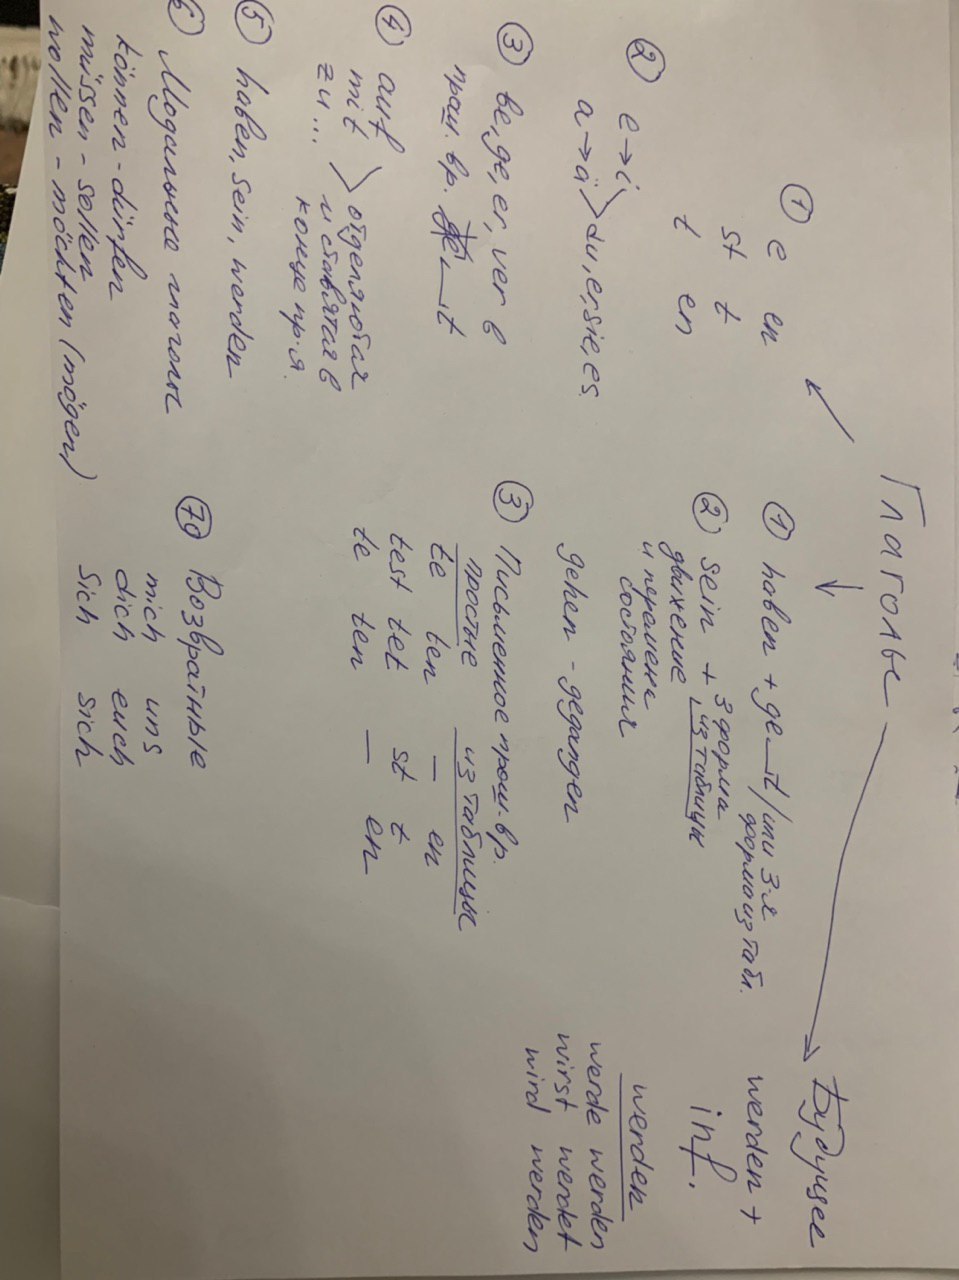 Глаголы
① e en
st t
t en
② e→i
a→ä > du, er, sie, es.
③ be, ge, er, ver в
прош. вр. __t
④ auf
mit
zu... > отделяются
и ставятся в
конце пр-я.
⑤ haben, sein, werden
⑥ Модальные глаголы
können - dürfen
müssen - sollen
wollen - möchten (mögen)
① haben + ge__t / или 3-я
форма из табл.
② sein + 3 форма
из таблицы
движение
и перемена
состояния
gehen - gegangen
③ Письменное прош. вр.
простые из таблицы
te ten — en
test tet st t
te ten — en
⑦ Возвратные
mich uns
dich euch
sich sich
Будущее
werden +
inf.
werden
werde werden
wirst werdet
wird werden